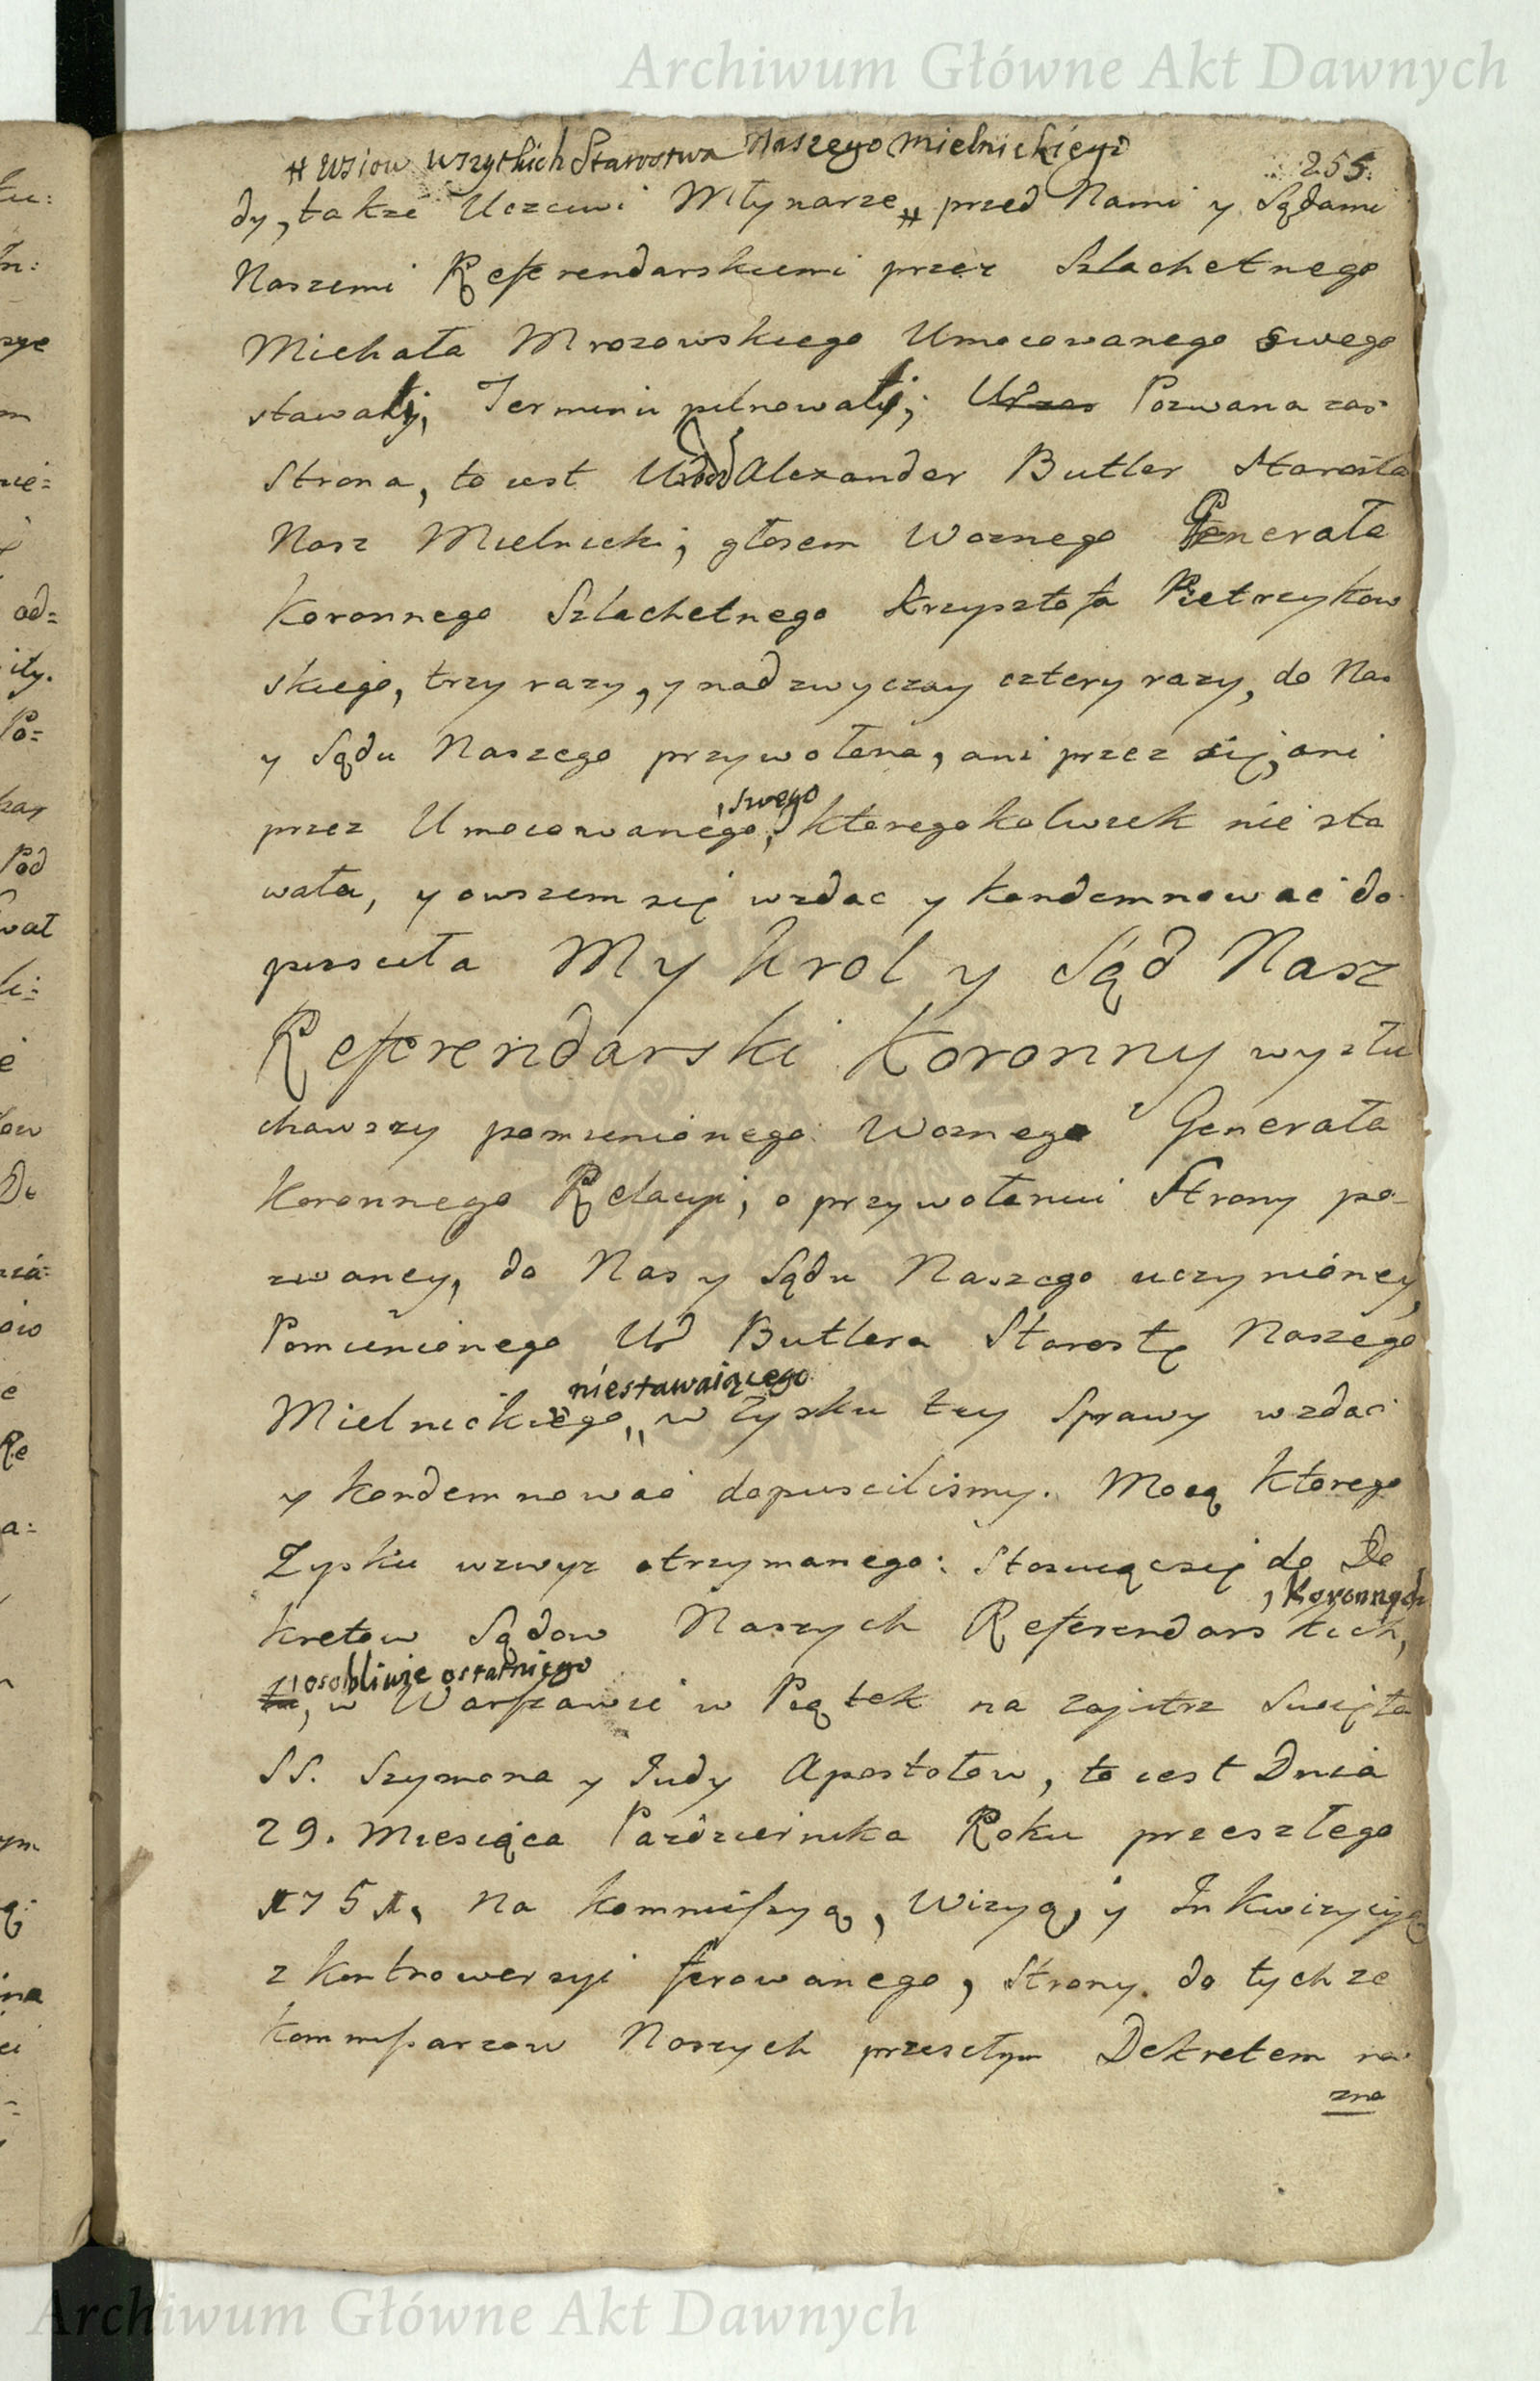 Archiwum Główne Akt Dawnych
# Wsiow wszytkich Starostwa Naszego Mielnickiego
255.
dy, także Uczciwi Młynarze # przed Nami y Sądami
Naszemi Referendarskiemi przez Szlachetnego
Michała Mrozowskiego Umocowanego swego
stawały, Terminu pilnowały; Pozwana zas
Strona, to iest Urod Alexander Butler Starosta
Nasz Mielnicki, głosem Woznego Generała
Koronnego Szlachetnego Krzysztofa Pietrzykow
skiego, trzy razy, y nad zwyczay cztery razy, do Nas
y Sądu Naszego przywołana, ani przez się, ani
, swego
przez Umocowanego, ktoregokolwiek nie sta
wała, y owszem się wzdac y kondemnować do
pusciła My Krol y Sąd Nasz
Referendarski Koronny wysłu
chawszy pomienionego Woznego Generała
Koronnego Relacyi, o przywołaniu Strony po-
zwaney, do Nas y Sądu Naszego uczynioney,
Pomienionego Ur Butlera Starostę Naszego
niestawaiącego
Mielnickiego,, w Zysku tey Sprawy wzdać
y kondemnować dopuscilismy. Mocą ktorego
Zysku wzwyz otrzymanego: Stosuiąc się do De
, Koronnych
kretow Sądow Naszych Referendarskich,
osobliwie ostatniego
, w Warszawie w Piątek na zajutrz Swięta
SS. Szymona y Judy Apostołow, to iest Dnia
29. Miesiąca Pazdziernika Roku przeszłego
1751, na kommissyą, Wizyą, y Inkwizycyą
z kontrowersyi ferowanego, Strony do tychze
kommissarzow Naszych przeszłym Dekretem na
zna
Archiwum Główne Akt Dawnych